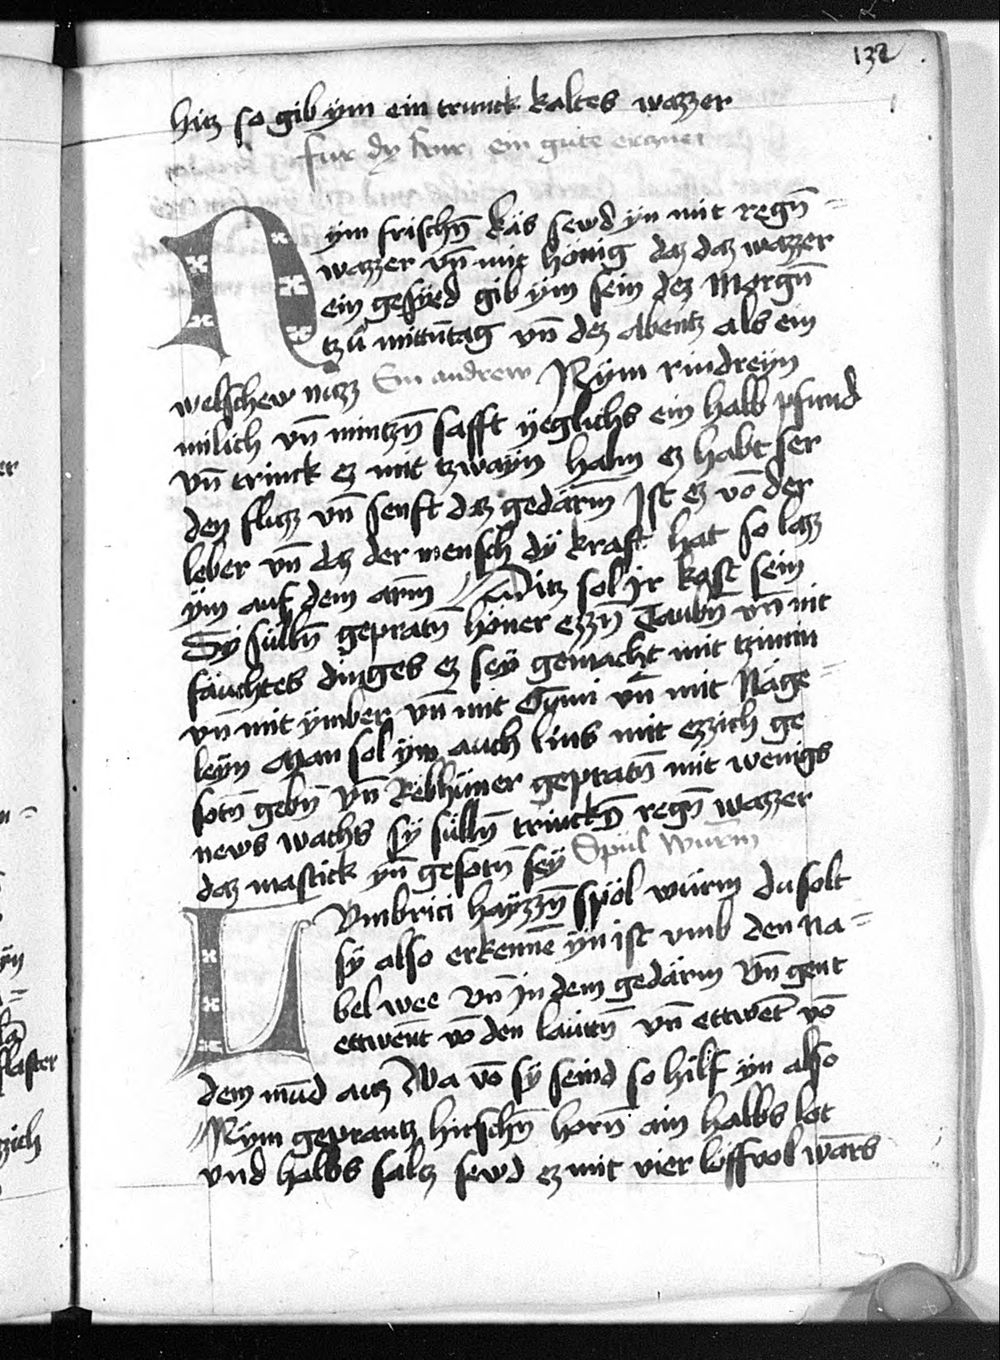 132
hitz so gib ym ein trunck kaltes wazzer
fur dy Rur ein gute erznei
Nym frischn̄ käs sewd yn mit regn̄ =
wazzer vn̄ mit hönig daz daz wazzer
ein gesyed gib ym sein dez Morgn̄
tzů mittn̄tag vn̄ dez Abentz als ein
welschew nuzz Ein andrew Nym rindreyn
milich vn̄ mintzn̄ safft yeglichs ein halb pfund
vn̄ trinck ez mit tzwayn haln ez habt ser
den fluzz vn̄ senft daz gedärm̄ Ist ez vō der
leber vn̄ daz der mensch dy kraft hat so lazz
ym auf dem arm̄ Ditz sol ir kost sein
Sy sülln̄ gepratn̄ höner ezzn̄ Taubn̄ vn̄ nit
fäuchtes dinges ez sey gemacht mit tzimin
vn̄ mit ymber vn̄ mit Gumi vn̄ mit Näge =
leyn Man sol ym auch lins mit ezzich ge
sotn̄ gebn̄ vn̄ Rebhüner gepratn̄ mit wenigs
news wachs sy sülln̄ trinckn̄ regn̄ wazzer
daz mastick yn̄ gesotn̄ sey Spül Würm̄
LVmbrici hayzzn̄ spöl würm du solt
sy also erkennē yn ist vmb den na =
bel wee vn̄ in dem gedärm vn̄ gent
ettwen̄t vō den läutn̄ vn̄ ettwēt vō
dem mūd auz Wa vō sy seind so hilf yn also
Nym geprantz hirschn̄ horn̄ ain halbs lot
vnd halbs saltz sewd ez mit vier löffvol wārs